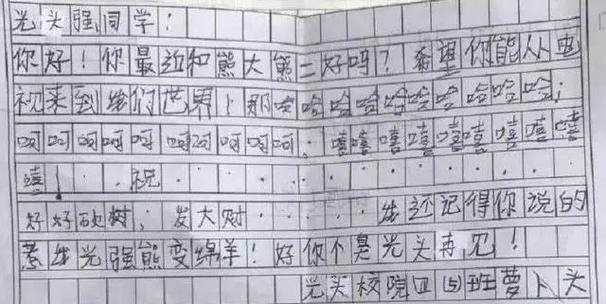 光头强同学:
你好!你最近和熊大熊二好吗?希望你能从电
视来到我们世界!那哈哈哈哈哈哈哈哈哈哈;
呵呵呵呵呵呵呵呵呵呵,嘻嘻嘻嘻嘻嘻嘻嘻
嘻!..祝............
好好砍树,发大财.....我还记得你说的
羞我光强熊变绵羊!好你个臭光头再见!
光头校院四(5)班萝卜头